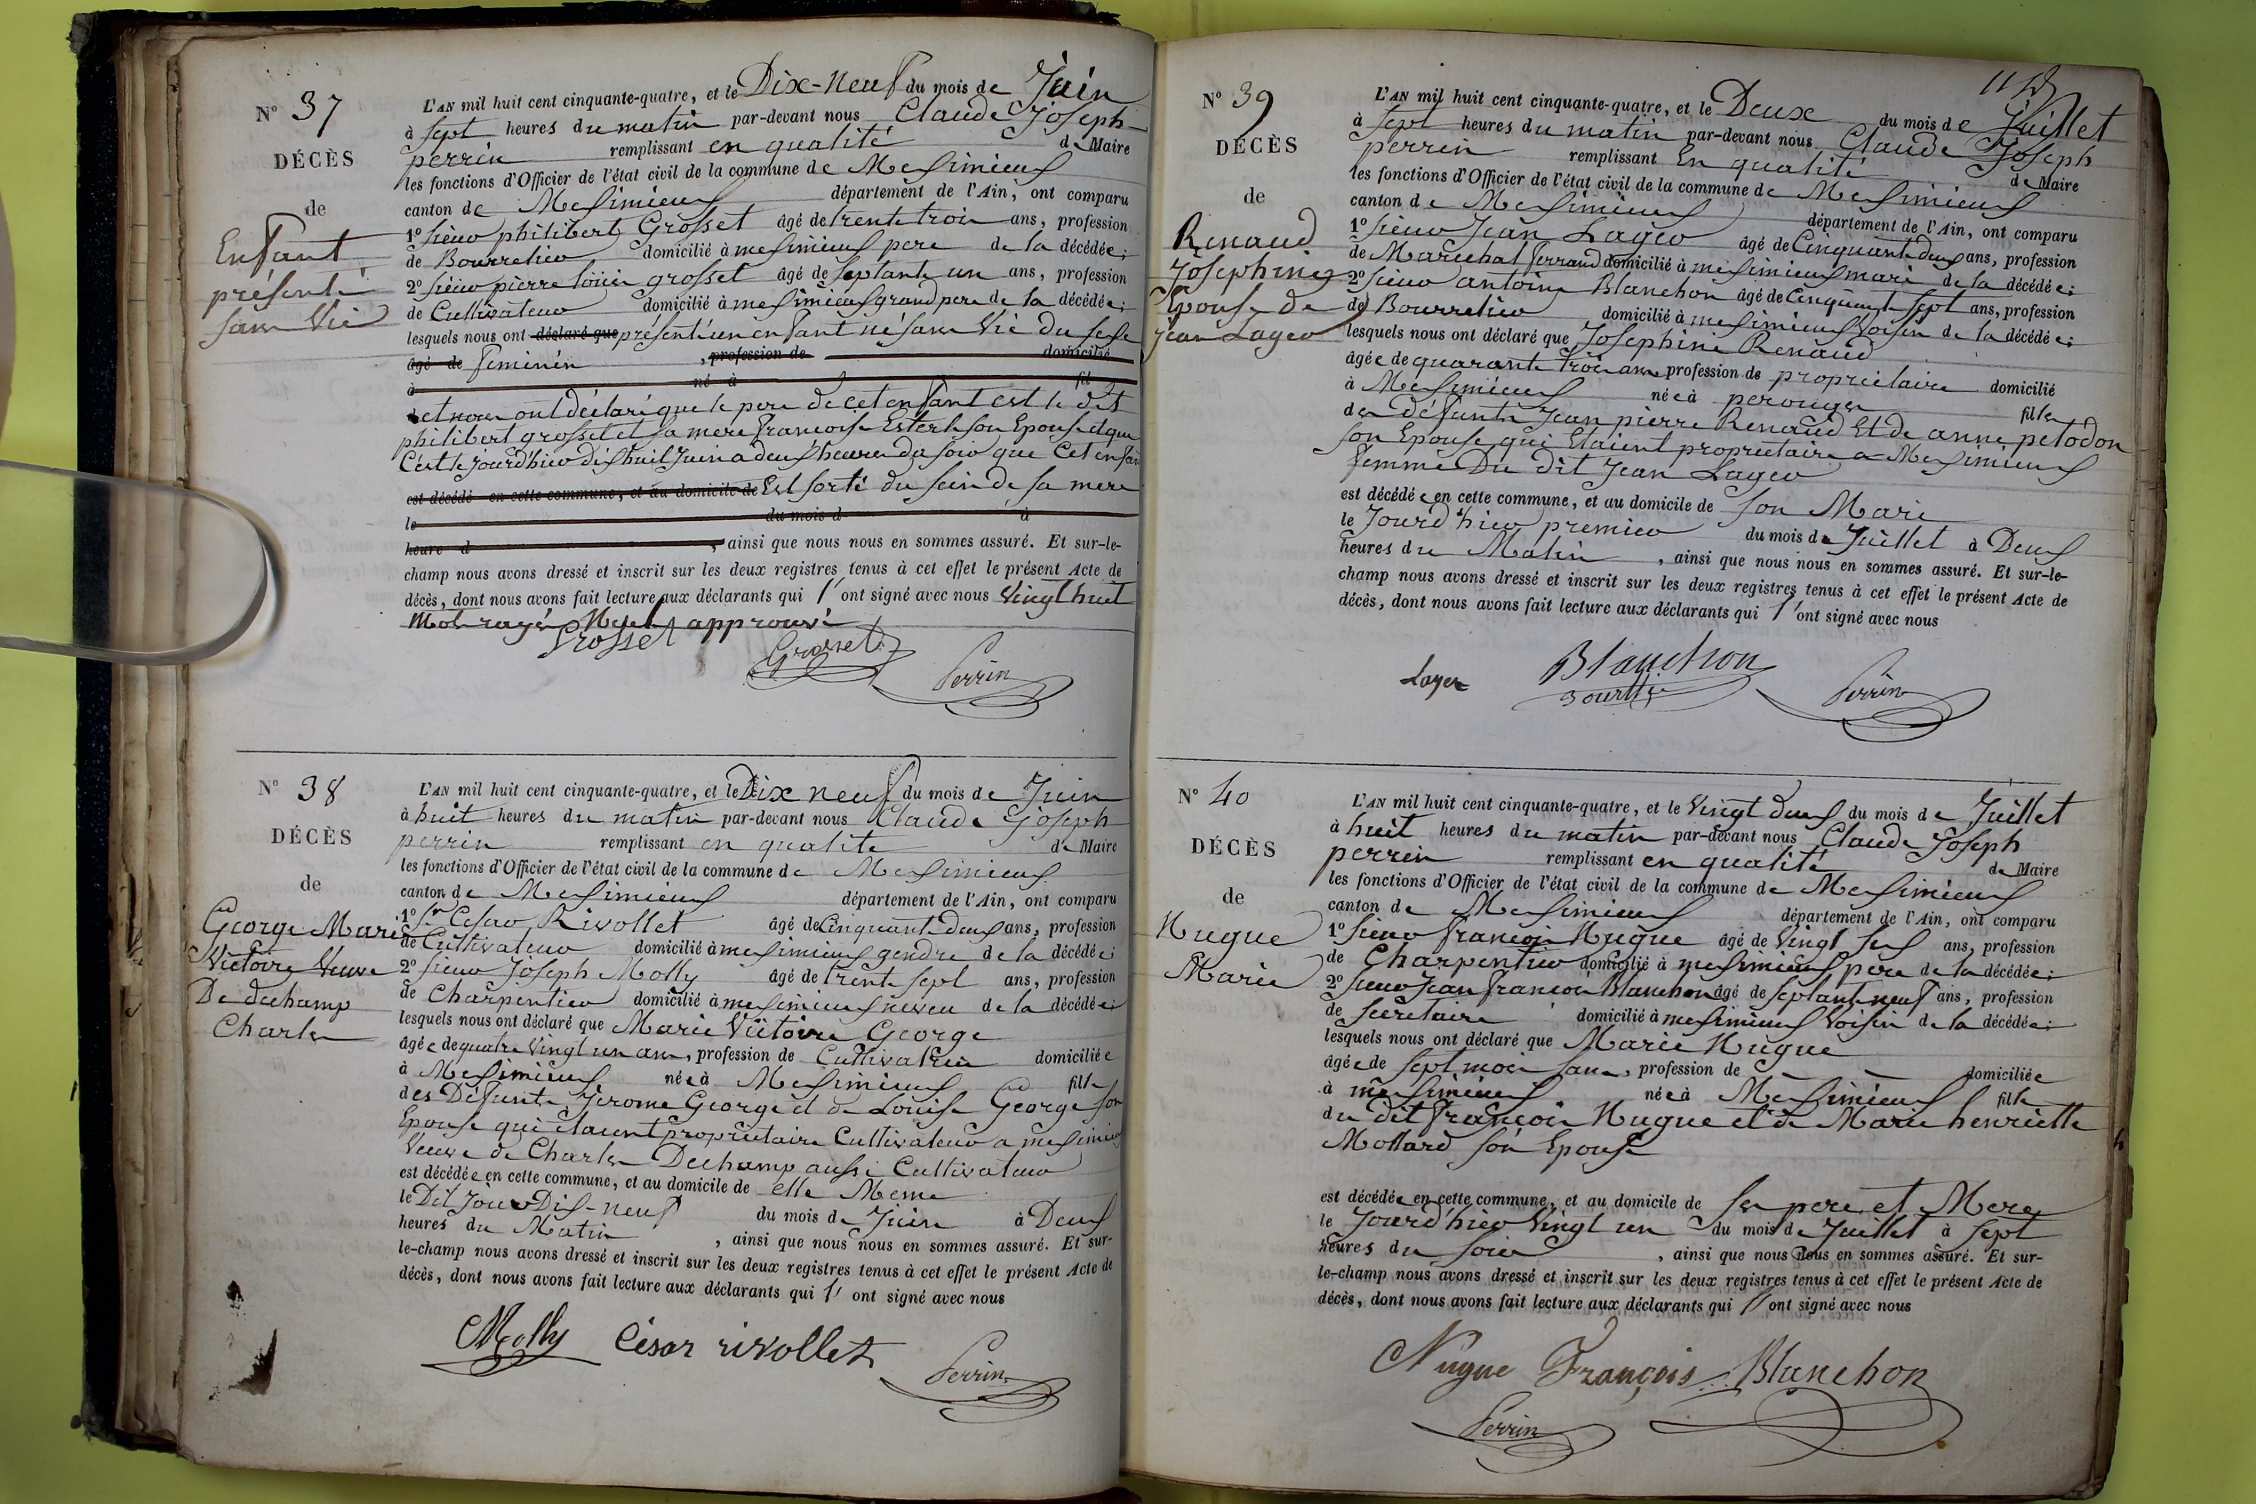 N° 37
DÉCÈS
de
Enfant
présenté
sans Vie
L'AN mil huit cent cinquante-quatre, et le Dix-Neuf du mois de Juin
à sept heures du matin par-devant nous Claude Joseph
perrin remplissant en qualité de Maire
les fonctions d'Officier de l'état civil de la commune de Meximieux
canton de Meximieux département de l'Ain, ont comparu
1° sieur philibert Grosset âgé de trente trois ans, profession
de Bourrelier domicilié à meximieux pere de la décédée;
2° sieur pierre louis grosset âgé de septante un ans, profession
de Cultivateur domicilié à meximieux grand pere de la décédée;
lesquels nous ont déclaré que présenté un enfant né sans Vie du sexe
âgé de feminin , profession de domicilié
à né à fil
et nous ont déclaré que le pere de cet enfant est le dit
philibert grosset et sa mere francoise Esterle son Epouse et que
C'est le jourd'hier dix huit Juin a deux heures du soir que Cet enfant
est décédé en cette commune, et au domicile de Est sorti du sein de sa mere
le du mois d à
heure d , ainsi que nous nous en sommes assuré. Et sur-le-
champ nous avons dressé et inscrit sur les deux registres tenus à cet effet le présent Acte de
décès, dont nous avons fait lecture aux déclarants qui l' ont signé avec nous Vingt huit
Mots rayés Nuls approuvé
Grosset Grosset Perrin
N° 38
DÉCÈS
de
George Marie
Victoire Veuve
De dechamp
Charles
L'AN mil huit cent cinquante-quatre, et le Dix neuf du mois de Juin
à huit heures du matin par-devant nous Claude Joseph
perrin remplissant en qualité de Maire
les fonctions d'Officier de l'état civil de la commune de Meximieux
canton de Meximieux département de l'Ain, ont comparu
1° Sr Cesar Rivollet âgé de Cinquante deux ans, profession
de Cultivateur domicilié à meximieux gendre de la décédée;
2° sieur Joseph Molly âgé de trente sept ans, profession
de Charpentier domicilié à meximieux neveu de la décédée;
lesquels nous ont déclaré que Marie Victoire George
âgée de quatre Vingt un ans, profession de Cultivatrice domiciliée
à Meximieux née à Meximieux fille
des Défunts Jerome George et de Louise George son
Epouse qui étaient propriétaire Cultivateur a meximieux
Veuve de Charles Dechamp aussi Cultivateur
est décédée en cette commune, et au domicile de elle Meme
le Dit Jour Dix-neuf du mois de Juin à Deux
heures du Matin , ainsi que nous nous en sommes assuré. Et sur-
le-champ nous avons dressé et inscrit sur les deux registres tenus à cet effet le présent Acte de
décès, dont nous avons fait lecture aux déclarants qui l' ont signé avec nous
Molly César rivollet Perrin
N° 39
DÉCÈS
de
Renaud
Josephine
Epouse de
Jean Lager
L'AN mil huit cent cinquante-quatre, et le Deux du mois de Juillet
à sept heures du matin par-devant nous Claude Joseph
perrin remplissant En qualité de Maire
les fonctions d'Officier de l'état civil de la commune de Meximieux
canton de Meximieux département de l'Ain, ont comparu
1° sieur Jean Lager âgé de Cinquante deux ans, profession
de Marechal ferrand domicilié à meximieux mari de la décédée;
2° sieur antoine Blanchon âgé de Cinquante sept ans, profession
de Bourrelier domicilié à meximieux Voisin de la décédée;
lesquels nous ont déclaré que Josephine Renaud
âgée de quarante trois ans profession de propriétaire domicilié
à Meximieux née à perouges fille
des défunts Jean pierre Renaud Et de anne petodon
son Epouse qui Etaient propriétaire a Meximieux
femme Du dit Jean Lager
est décédée en cette commune, et au domicile de son Mari
le Jourd'hier premier du mois de Juillet à Deux
heures du Matin , ainsi que nous nous en sommes assuré. Et sur-le-
champ nous avons dressé et inscrit sur les deux registres tenus à cet effet le présent Acte de
décès, dont nous avons fait lecture aux déclarants qui l' ont signé avec nous
Layer Blanchon Perrin
N° 40
DÉCÈS
de
Nugue
Marie
L'AN mil huit cent cinquante-quatre, et le Vingt deux du mois de Juillet
à huit heures du matin par-devant nous Claude Joseph
perrin remplissant en qualité de Maire
les fonctions d'Officier de l'état civil de la commune de Meximieux
canton de Meximieux département de l'Ain, ont comparu
1° sieur francois Nugue âgé de Vingt six ans, profession
de Charpentier domicilié à meximieux pere de la décédée;
2° sieur Jean francois Blanchon âgé de septante neuf ans, profession
de secretaire domicilié à meximieux Voisin de la décédée;
lesquels nous ont déclaré que Marie Nugue
âgée de sept mois sans, profession de domiciliée
à meximieux née à Meximieux fille
du dit francois Nugue et de Marie henriette
Mottard son Epouse
est décédée en cette commune, et au domicile de ses pere et Mere
le Jourd'hier Vingt un du mois de Juillet à sept
heures du soir , ainsi que nous nous en sommes assuré. Et sur-
le-champ nous avons dressé et inscrit sur les deux registres tenus à cet effet le présent Acte de
décès, dont nous avons fait lecture aux déclarants qui l' ont signé avec nous
Nugue François Blanchon
Perrin